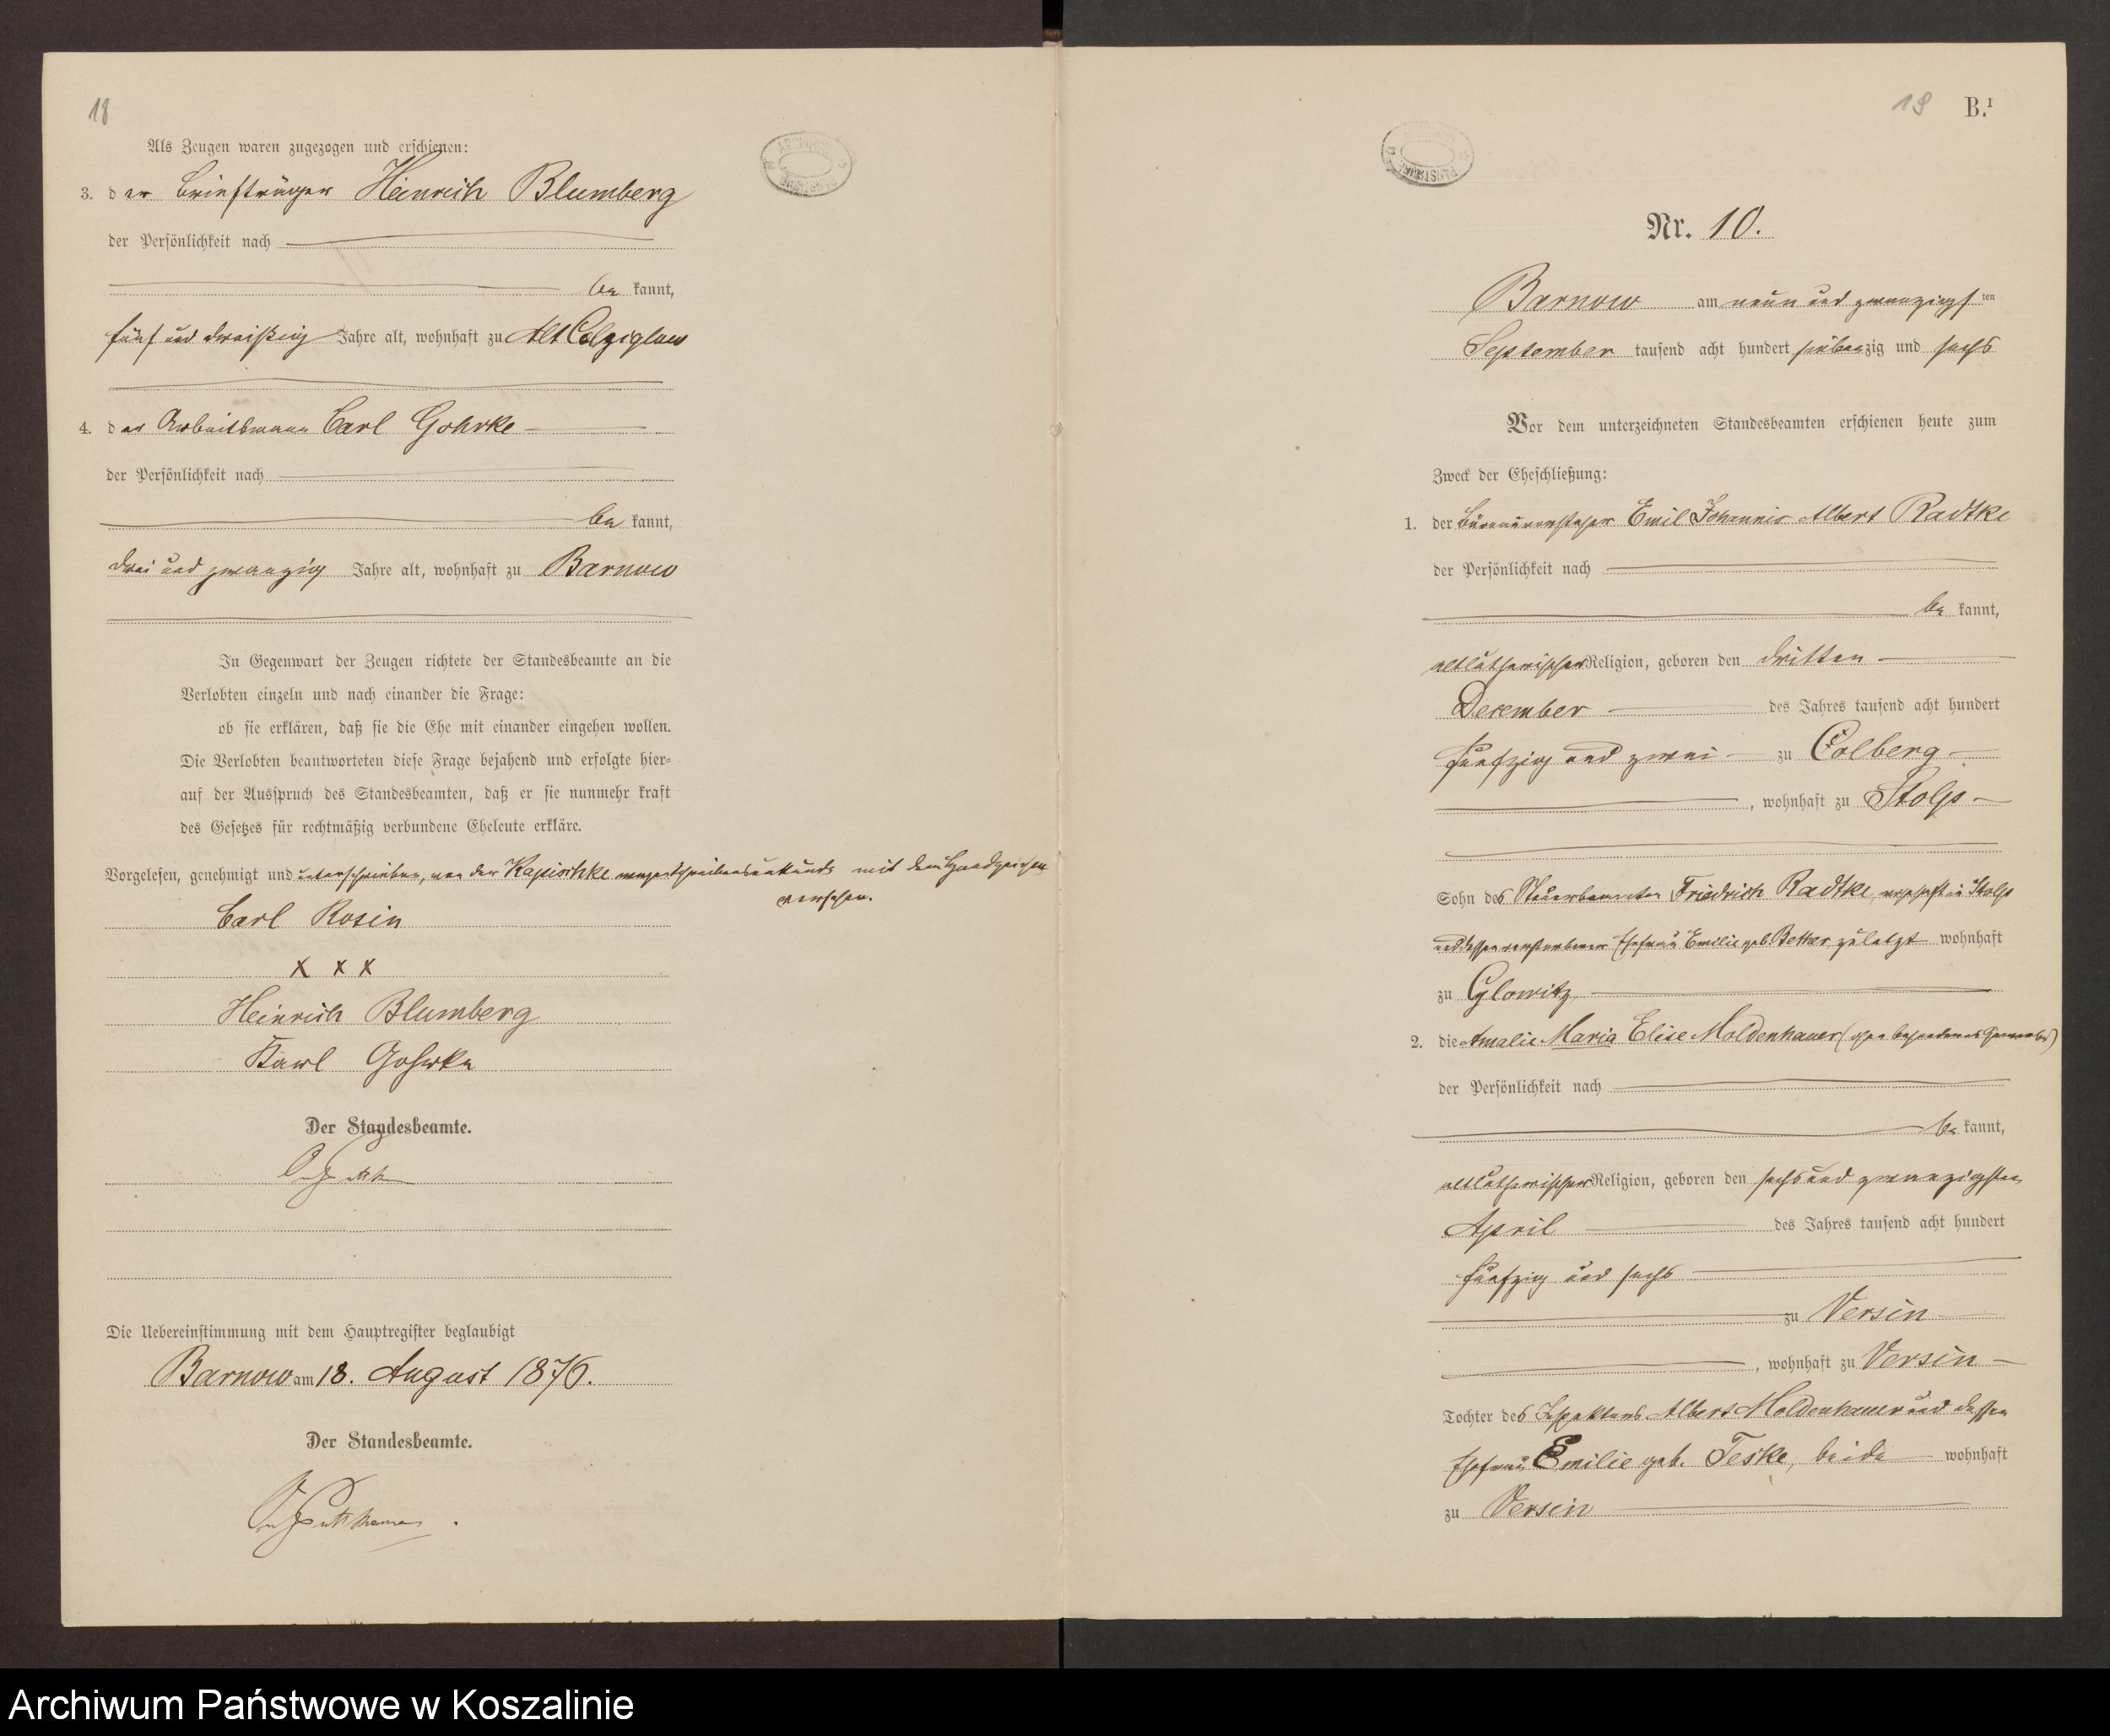 18
Als Zeugen waren zugezogen und erschienen:
3. der Briefträger Heinrich Blumberg
der Persönlichkeit nach
be kannt,
fünf und dreißig Jahre alt, wohnhaft zu Alt Colziglow
4. der Arbeitsmann Carl Gohrke
der Persönlichkeit nach
be kannt,
drei und zwanzig Jahre alt, wohnhaft zu Barnow
In Gegenwart der Zeugen richtete der Standesbeamte an die
Verlobten einzeln und nach einander die Frage:
ob sie erklären, daß sie die Ehe mit einander eingehen wollen.
Die Verlobten beantworteten diese Frage bejahend und erfolgte hier=
auf der Ausspruch des Standesbeamten, daß er sie nunmehr kraft
des Gesetzes für rechtmäßig verbundene Eheleute erkläre.
Vorgelesen, genehmigt und unterschrieben, von der Kapischke wegen Schreibensunkunde mit dem Handzeichen
versehen.
Carl Rosin
x x x
Heinrich Blumberg
Karl Gohrke
Der Standesbeamte.
Die Uebereinstimmung mit dem Hauptregister beglaubigt
Barnow am 18. August 1876.
Der Standesbeamte.
19 B.¹
Nr. 10.
Barnow am neun und zwanzigsten
September tausend acht hundert siebenzig und sechs
Vor dem unterzeichneten Standesbeamten erschienen heute zum
Zweck der Eheschließung:
1. der Bureauvorsteher Emil Johannis Albert Radtke
der Persönlichkeit nach
be kannt,
altlutherischer Religion, geboren den dritten
December des Jahres tausend acht hundert
fünfzig und zwei zu Colberg
, wohnhaft zu Stolp
Sohn des Steuerbeamten Friedrich Radtke, wohnhaft in Stolp
und dessen verstorbener Ehefrau Emilie geb. zuletzt wohnhaft
zu Glowitz
2. die Amalie Maria Elise Moldenhauer (ohne besonderes Gewerbe)
der Persönlichkeit nach
be kannt,
altlutherischer Religion, geboren den sechs und zwanzigsten
April des Jahres tausend acht hundert
fünfzig und sechs
zu Versin
, wohnhaft zu Versin
Tochter des Inspektors Albert Moldenhauer und dessen
Ehefrau Emilie geb. Teske, beide wohnhaft
zu Versin
Archiwum Państwowe w Koszalinie